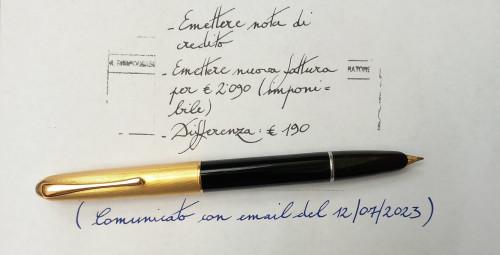 - Emettere nota di
credito
- Emettere nuova fattura
per € 2.090 (imponi=
bile)
- Differenza: € 190
(Comunicato con email del 12/07/2023)